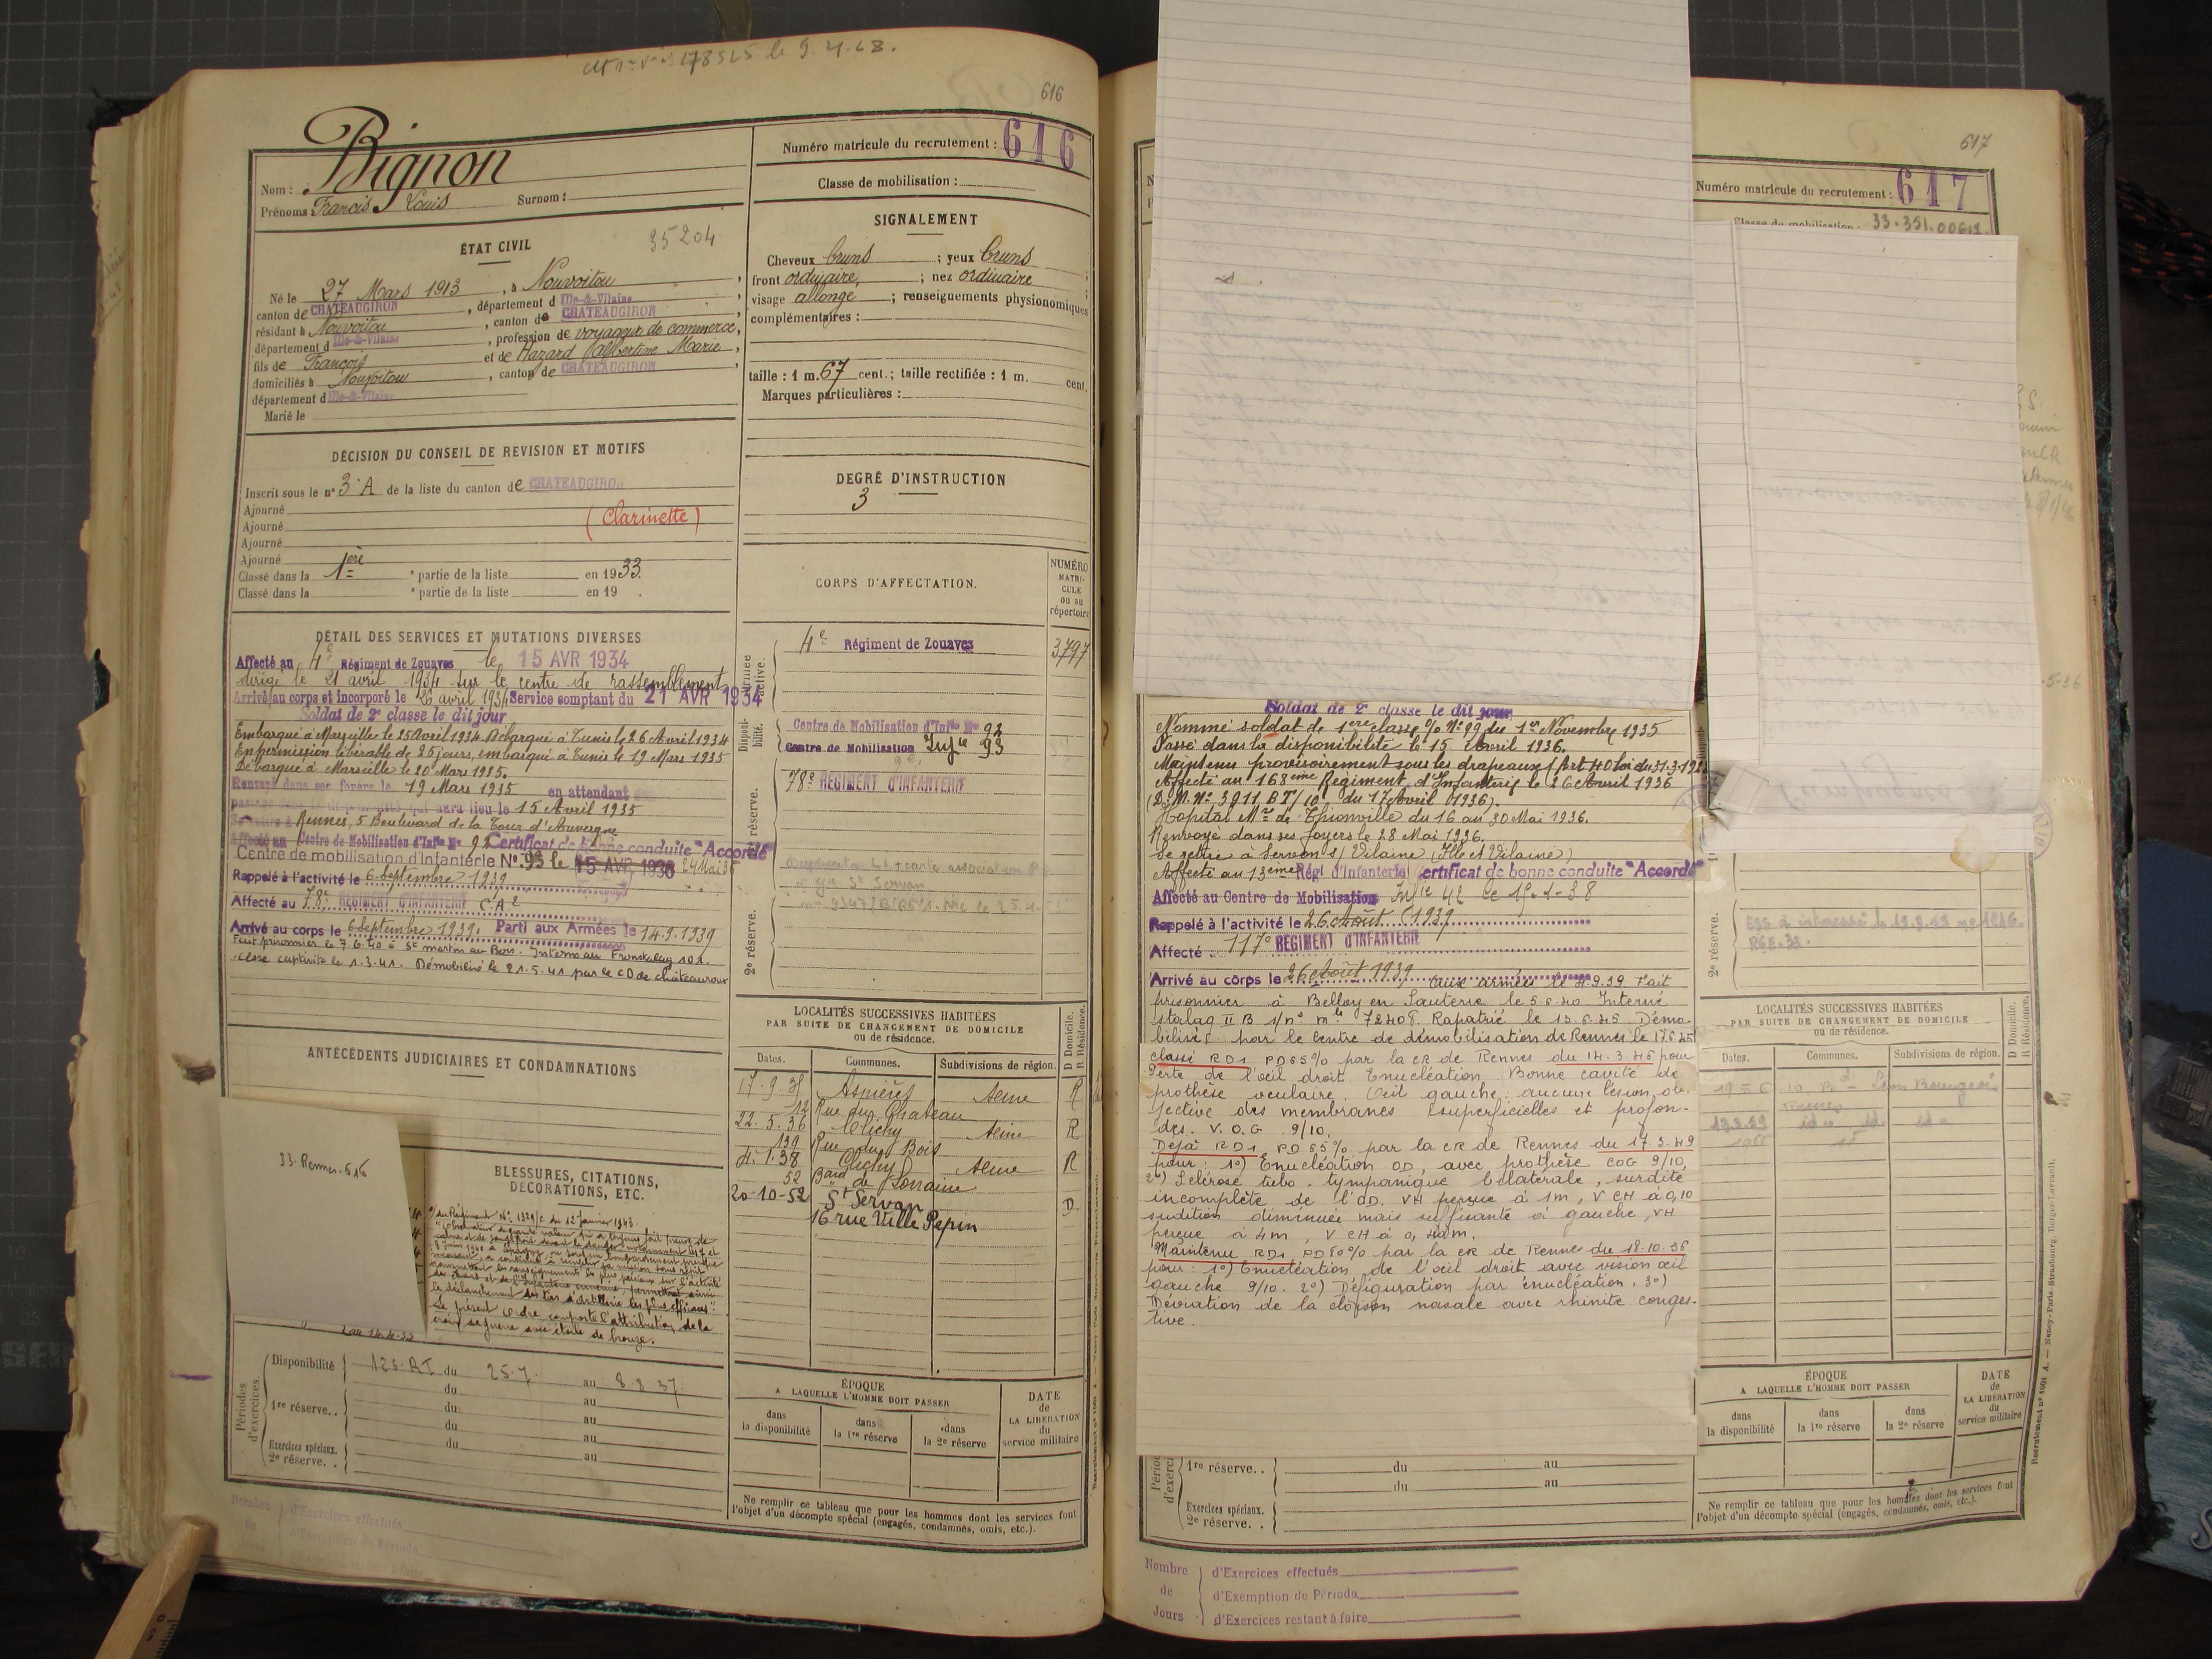 616
Numéro matricule du recrutement : 616
Nom : Bignon
Prénoms Francis Louis Surnom :
Classe de mobilisation :
ÉTAT CIVIL
35204
Né le 27 Mars 1913, à Nouvoitou,
canton de CHATEAUGIRON, département d Ille-&-Vilaine,
résidant à Nouvoitou, canton de CHATEAUGIRON,
département d Ille-&-Vilaine, profession de voyageur de commerce,
fils de François et de Hazard Albertine Marie,
domiciliés à Nouvoitou, canton de CHATEAUGIRON,
département d Ille-&-Vilaine
Marié le
SIGNALEMENT
Cheveux bruns ; yeux bruns
front ordinaire, ; nez ordinaire ;
visage allongé ; renseignements physionomiques
complémentaires :
taille : 1 m. 67 cent.; taille rectifiée : 1 m. cent.
Marques particulières :
DÉCISION DU CONSEIL DE REVISION ET MOTIFS
Inscrit sous le n° 3 A de la liste du canton de CHATEAUGIRON
Ajourné
(Clarinette)
Ajourné
Ajourné
Ajourné
Classé dans la 1ère partie de la liste en 1933.
Classé dans la partie de la liste en 19 .
DEGRÉ D'INSTRUCTION
3
CORPS D'AFFECTATION.
NUMÉRO MATRICULE ou au répertoire
DÉTAIL DES SERVICES ET MUTATIONS DIVERSES
Affecté au 4e Régiment de Zouaves le 15 AVR 1934
dirigé le 21 avril 1934 sur le centre de rassemblement
Arrivé au corps et incorporé le 26 avril 1934 Service comptant du 21 AVR 1934
Soldat de 2e classe le dit jour
Embarqué à Marseille le 25 Avril 1934. Débarqué à Tunis le 26 Avril 1934
En permission libérable de 25 jours, embarqué à Tunis le 19 Mars 1935
Débarqué à Marseille le 20 Mars 1935.
Renvoyé dans ses foyers le 19 Mars 1935 en attendant son
passage dans la disponibilité qui aura lieu le 15 Avril 1935
Se retire à Rennes, 5 Boulevard de la Tour d'Auvergne
Affecté au Centre de Mobilisation d'Infie N° 92 Certificat de bonne conduite "Accordé"
Centre de mobilisation d'Infanterie N° 93 le 15 AVR 1936 24 Mai 36
Rappelé à l'activité le 6 septembre 1939
Affecté au 78e REGIMENT D'INFANTERIE CA2
Arrivé au corps le 6 septembre 1939. Parti aux Armées le 14.9.1939
Fait prisonnier le 7.6.40 à St martin au Bois. Interné au Frontstalag 102.
Cesse captivité le 1.3.41. Démobilisé le 21.5.41 par le CD de châteauroux
Armée active.
4e Régiment de Zouaves 3797
Disponibilité.
Centre de Mobilisation d'Infie N° 92
Centre de Mobilisation Infie 93
78e REGIMENT D'INFANTERIE
2e réserve.
ANTÉCÉDENTS JUDICIAIRES ET CONDAMNATIONS
33. Rennes. 616
BLESSURES, CITATIONS, DÉCORATIONS, ETC.
le déclanchement des tirs d'artillerie les plus efficaces".
Le présent ordre comporte l'attribution de la
croix de guerre avec étoile de bronze.
LOCALITÉS SUCCESSIVES HABITÉES
PAR SUITE DE CHANGEMENT DE DOMICILE
ou de résidence.
D Domicile.
R Résidence.
Dates. Communes. Subdivisions de région.
17.9.35 Asnières Seine R
12 Rue du Chateau
22.5.36 Clichy Seine R
139 Rue du Bois
4.1.38 Clichy Seine R
52 Bard de Lorraine
20-10-52 St Servan D.
16 rue Ville Pepin
Périodes d'exercices.
Disponibilité 126. RI du 25.7. au 8.8.37.
du au
1re réserve.. du au
du au
Exercices spéciaux. du au
2e réserve. . au
ÉPOQUE
A LAQUELLE L'HOMME DOIT PASSER
DATE de LA LIBÉRATION du service militaire
dans la disponibilité
dans la 1re réserve
dans la 2e réserve
Ne remplir ce tableau que pour les hommes dont les services font
l'objet d'un décompte spécial (engagés, condamnés, omis, etc.).
Nombre de Jours
d'Exercices effectués
d'Exemption de Période
617
Numéro matricule du recrutement : 617
Classe de mobilisation : 33.351.00617
Soldat de 2e classe le dit jour
Nommé soldat de 1ère classe % N° 99 du 1er Novembre 1935
Passé dans la disponibilité le 15 Avril 1936.
Maintenu provisoirement sous les drapeaux (Art. 40 loi du 31.3.1928
Affecté au 168ème Régiment d'Infanterie le 26 Avril 1936
(D.M. N° 3911 BT/10 du 17 Avril 1936).
Hopital Mre de Thionville du 16 au 30 Mai 1936.
Renvoyé dans ses foyers le 28 Mai 1936.
Se retire à Servon s/ Vilaine (Ille et Vilaine)
Affecté au 13ème Régt d'Infanterie Certificat de bonne conduite "Accordé"
Affecté au Centre de Mobilisation Infie 42 le 15-1-38
Rappelé à l'activité le 26 Août 1939
Affecté 117e REGIMENT D'INFANTERIE
Arrivé au corps le 26 Août 1939 aux armées le 4.9.39 Fait
prisonnier à Belloy en Santerre le 5.6.40 Interné
stalag II B s/n° mle 72408. Rapatrié le 15.6.45 Démo-
bilisé par le centre de démobilisation de Rennes le 17.6.45
Classé RD1 PD 65% par la CR de Rennes du 14.3.46 pour
Perte de l'œil droit. Enucléation. Bonne cavité de
prothèse oculaire. Œil gauche : aucune lésion ob-
jective des membranes superficielles et profon-
des. V.O.G 9/10.
Déjà RD1, PD 65% par la CR de Rennes du 17.3.49
pour : 1°) Enucléation OD, avec prothèse COG 9/10,
2°) Sclérose tubo-tympanique bilatérale, surdité
incomplète de l'OD. VH perçue à 1m, V CH à 0,10
audition diminuée mais suffisante à gauche, VH
perçue à 4m, V CH à 0,40m.
Maintenu RD1 PD 80% par la CR de Rennes du 18.10.56
pour : 1°) Enucléation de l'œil droit avec vision œil
gauche 9/10. 2°) Défiguration par énucléation. 3°)
Déviation de la cloison nasale avec rhinite conges-
tive.
2e réserve.
LOCALITÉS SUCCESSIVES HABITÉES
PAR SUITE DE CHANGEMENT DE DOMICILE
ou de résidence.
D Domicile.
R Résidence.
Dates. Communes. Subdivisions de région.
1re réserve.. du au
du au
Exercices spéciaux.
2e réserve. .
ÉPOQUE
A LAQUELLE L'HOMME DOIT PASSER
DATE de LA LIBÉRATION du service militaire
dans la disponibilité
dans la 1re réserve
dans la 2e réserve
Ne remplir ce tableau que pour les hommes dont les services font
l'objet d'un décompte spécial (engagés, condamnés, omis, etc.).
Nombre de Jours
d'Exercices effectués
d'Exemption de Période
d'Exercices restant à faire